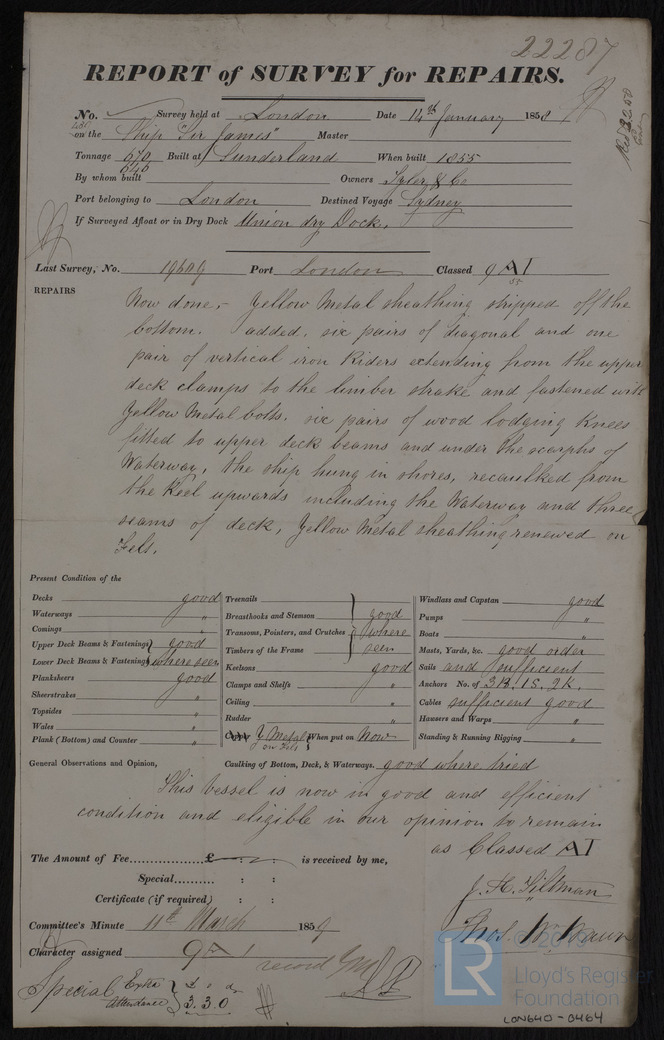 22287
REPORT of SURVEY for REPAIRS.
No. Survey held at London Date 14th January 1858
on the Ship "Sir James" Master
Tonnage 670 Built at Sunderland When built 1855
646
By whom built Owners Tyler & Co
Port belonging to London Destined Voyage Sydney
If Surveyed Afloat or in Dry Dock Union dry Dock.
Last Survey, No. 19609 Port London Classed 9 A1
55
REPAIRS
Now done,- Yellow Metal sheathing stripped off the
bottom. added, six pairs of diagonal and one
pair of vertical iron Riders extending from the upper
deck clamps to the limber strake and fastened with
Yellow Metal bolts. six pairs of wood lodging Knees
fitted to upper deck beams and under the scarphs of
Waterway, the ship hung in shores, recaulked from
the Keel upwards including the Waterway and three
seams of deck, Yellow Metal sheathing renewed on
Felt.
Present Condition of the
Decks good
Waterways "
Comings "
Upper Deck Beams & Fastenings good
Lower Deck Beams & Fastenings where seen
Planksheers good
Sheerstrakes "
Topsides "
Wales "
Plank (Bottom) and Counter "
Treenails
Breasthooks and Stemson good
Transoms, Pointers, and Crutches where
Timbers of the Frame seen
Keelsons good
Clamps and Shelfs "
Ceiling "
Rudder "
Y Metal When put on Now
on Felt
Windlass and Capstan good
Pumps "
Boats "
Masts, Yards, &c. good order
Sails and sufficient
Anchors No. of 3B. 1S. 2K.
Cables sufficient good
Hawsers and Warps "
Standing & Running Rigging "
General Observations and Opinion, Caulking of Bottom, Deck, & Waterways. good where tried
This Vessel is now in good and efficient
condition and eligible in our opinion to remain
as Classed A1
The Amount of Fee £ : : is received by me,
Special : :
Certificate (if required) : :
J. H. Tiltman
Committee's Minute 11th March 1859
Character assigned 9 A 1
record
Special Extra Attendance £ s d
3.3.0
© 2019
LR
Lloyd's Register
Foundation
LON640-0464